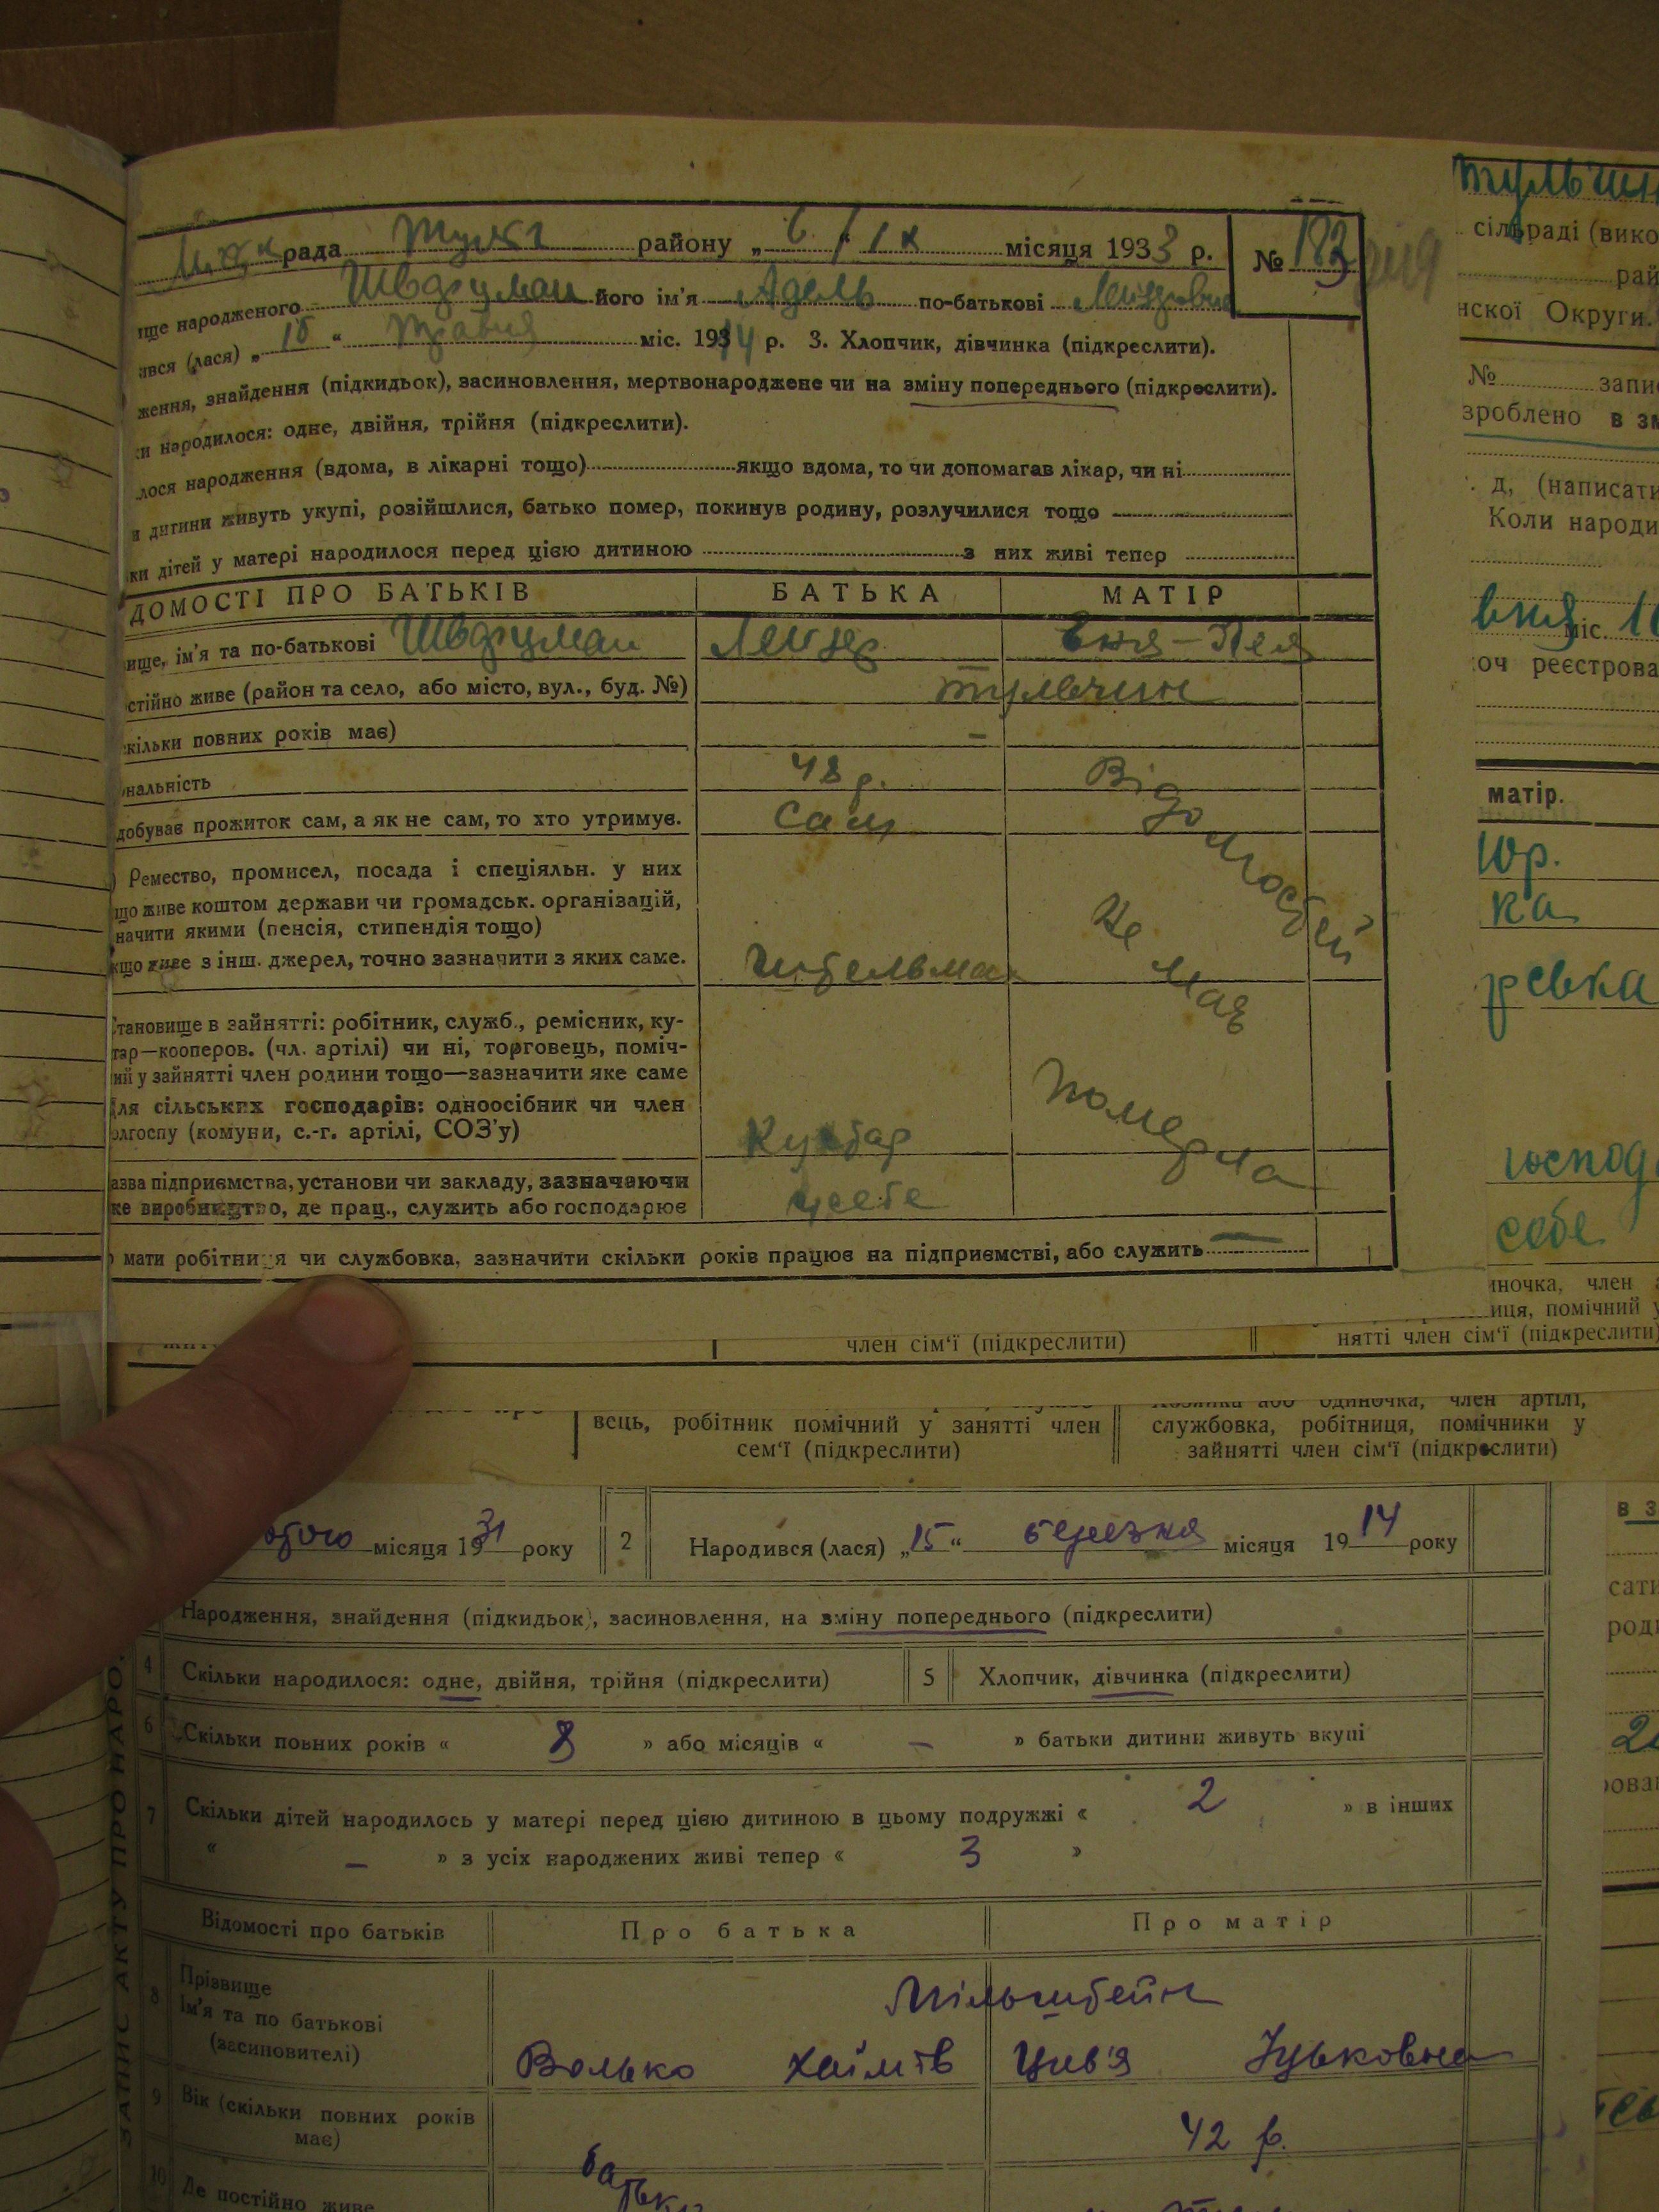 рада району „ 6 / ІХ місяця 1933 р. № 183
ще народженого Швархман його ім'я Адель по-батькові Лейзеровна
вся (лася) „ 15 “ Травня міс. 1914 р. 3. Хлопчик, дівчинка (підкреслити).
ження, знайдення (підкидьок), засиновлення, мертвонароджене чи на зміну попереднього (підкреслити).
и народилося: одне, двійня, трійня (підкреслити).
лося народження (вдома, в лікарні тощо) якщо вдома, то чи допомагав лікар, чи ні
и дитини живуть укупі, розійшлися, батько помер, покинув родину, розлучилися тощо
ки дітей у матері народилося перед цією дитиною з них живі тепер
ДОМОСТІ ПРО БАТЬКІВ БАТЬКА МАТІР
ище, ім'я та по-батькові Лейзер
стійно живе (район та село, або місто, вул., буд. №) Тульчин
кільки повних років має) –
нальність 48 р. Відомостей
добуває прожиток сам, а як не сам, то хто утримує. Сам
) Ремество, промисел, посада і спеціяльн. у них
що живе коштом держави чи громадськ. організацій,
начити якими (пенсія, стипендія тощо) не має
кщо живе з інш. джерел, точно зазначити з яких саме.
Становище в зайнятті: робітник, служб., ремісник, ку-
тар—кооперов. (чл. артілі) чи ні, торговець, поміч-
ий у зайнятті член родини тощо—зазначити яке саме
Для сільських господарів: одноосібник чи член Померла
олгоспу (комуни, с.-г. артілі, СОЗ'у) Кустар
азва підприємства, установи чи закладу, зазначаючи
ке виробництво, де прац., служить або господарює у себе
мати робітниця чи службовка, зазначити скільки років працює на підприємстві, або служить
член сім'ї (підкреслити) нятті член сім'ї (підкреслити)
вець, робітник помічний у занятті член службовка, робітниця, помічники у
сем'ї (підкреслити) зайнятті член сім'ї (підкреслити)
місяця 1931 року 2 Народився (лася) „15“ березня місяця 1914 року
Народження, знайдення (підкидьок), засиновлення, на зміну попереднього (підкреслити)
4 Скільки народилося: одне, двійня, трійня (підкреслити) 5 Хлопчик, дівчинка (підкреслити)
6 Скільки повних років « 8 » або місяців « – » батьки дитини живуть вкупі
7 Скільки дітей народилось у матері перед цією дитиною в цьому подружжі « 2 » в інших
« – » з усіх народжених живі тепер « 3 »
Відомості про батьків Про батька Про матір
8 Прізвище Мільштейн
Ім'я та по батькові
(засиновителі) Волько Хаїмів Цив'я Іцьковна
9 Вік (скільки повних років
має) 42 р.
10 Де постійно живе батьки
ЗАПИС АКТУ ПРО НАРО
тульчин
сільраді (вико
рай
нскої Округи.
№ запис
зроблено в зм
д, (написати
Коли народи
міс.
оч реєстрова
матір.
господ
себе
иночка, член
иця, помічний у